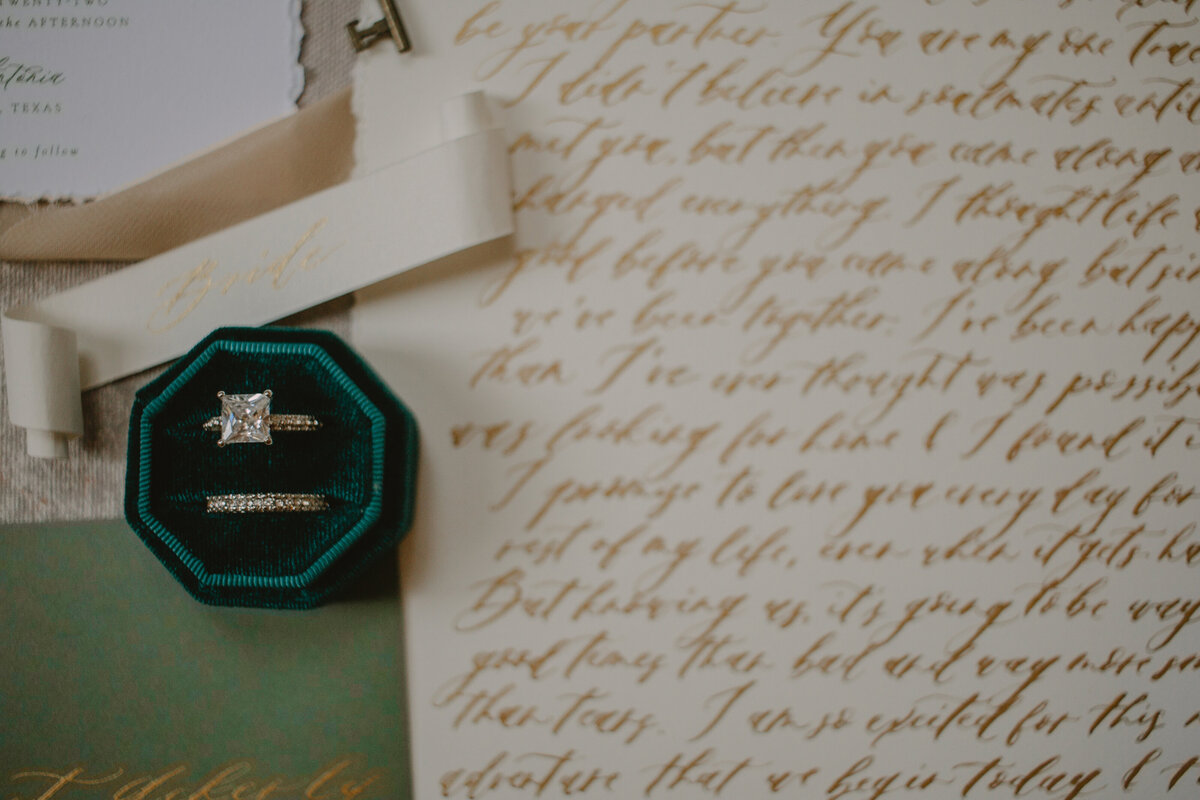 TWENTY-TWO
the AFTERNOON
, TEXAS
to follow
Bride
be your partner. You are my one true
I didn't believe in soulmates until
met you, but then you came along
changed everything. I thought life
good before you came along but
we've been together. I've been
than I've ever thought was
was looking for home & I found it
I promise to love you every day for
rest of my life, even when it gets
But knowing us, it's going to be way
good times than bad and way more
than tears. I am so excited for this
adventure that we begin today &